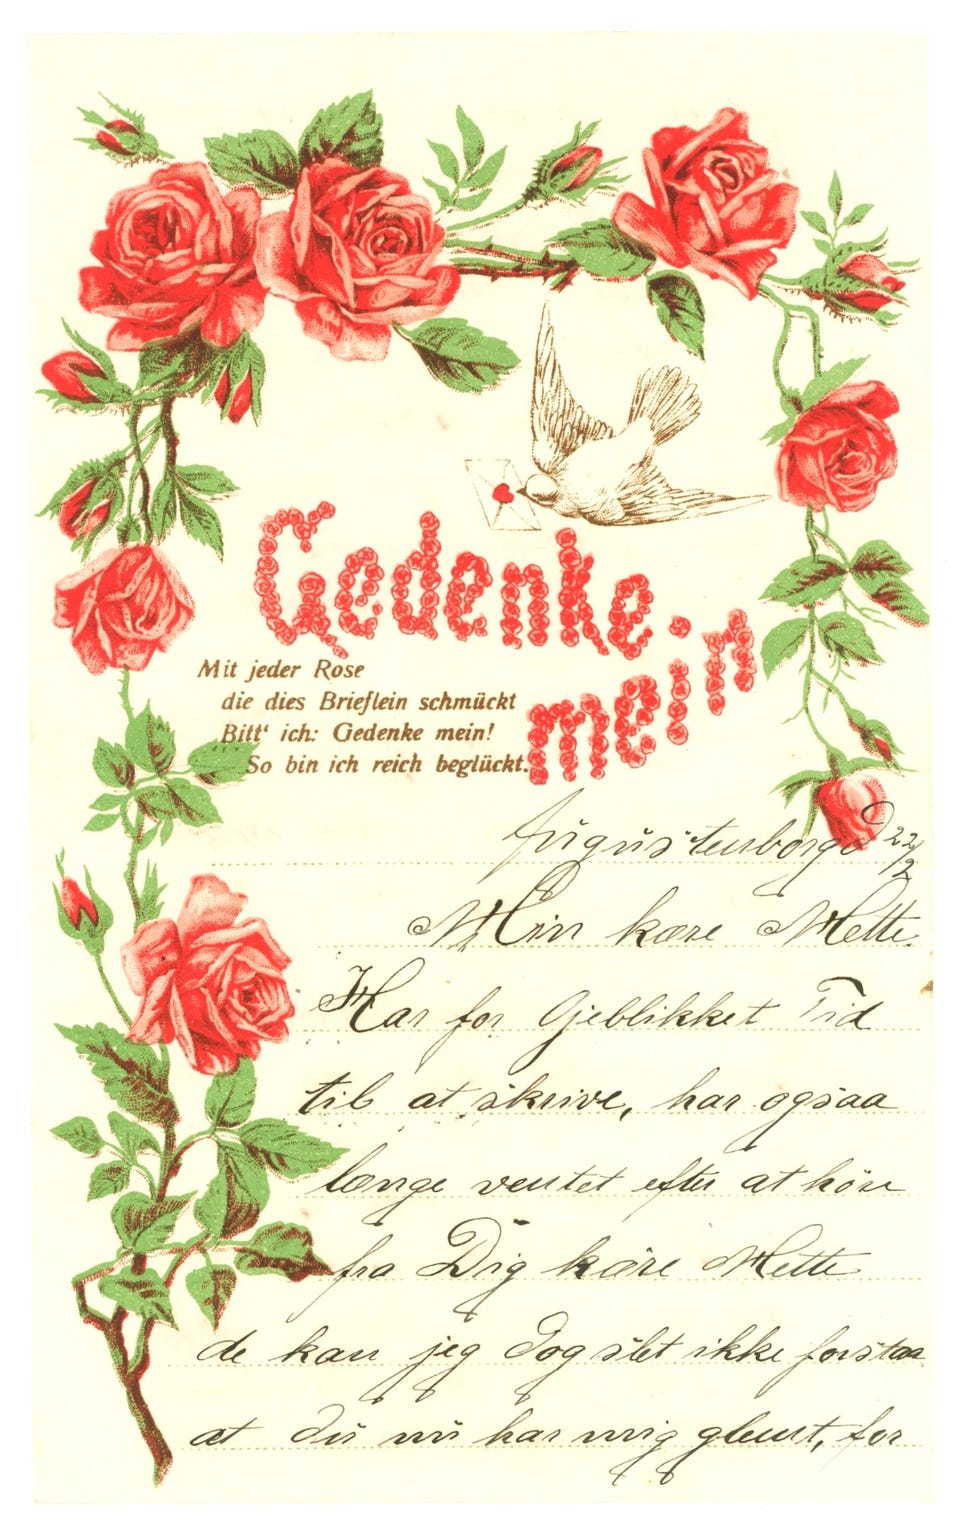 Gedenke
mein
Mit jeder Rose
die dies Brieflein schmückt
Bitt' ich: Gedenke mein!
So bin ich reich beglückt.
Augustenborg d 22/2
Min kære Mette.
Har for Ojeblikket Tid
til at skrive, har ogsaa
længe ventet efter at höre
fra Dig kære Mette
de kan jeg dog slet ikke forstaa
at du nu har mig glemt, for